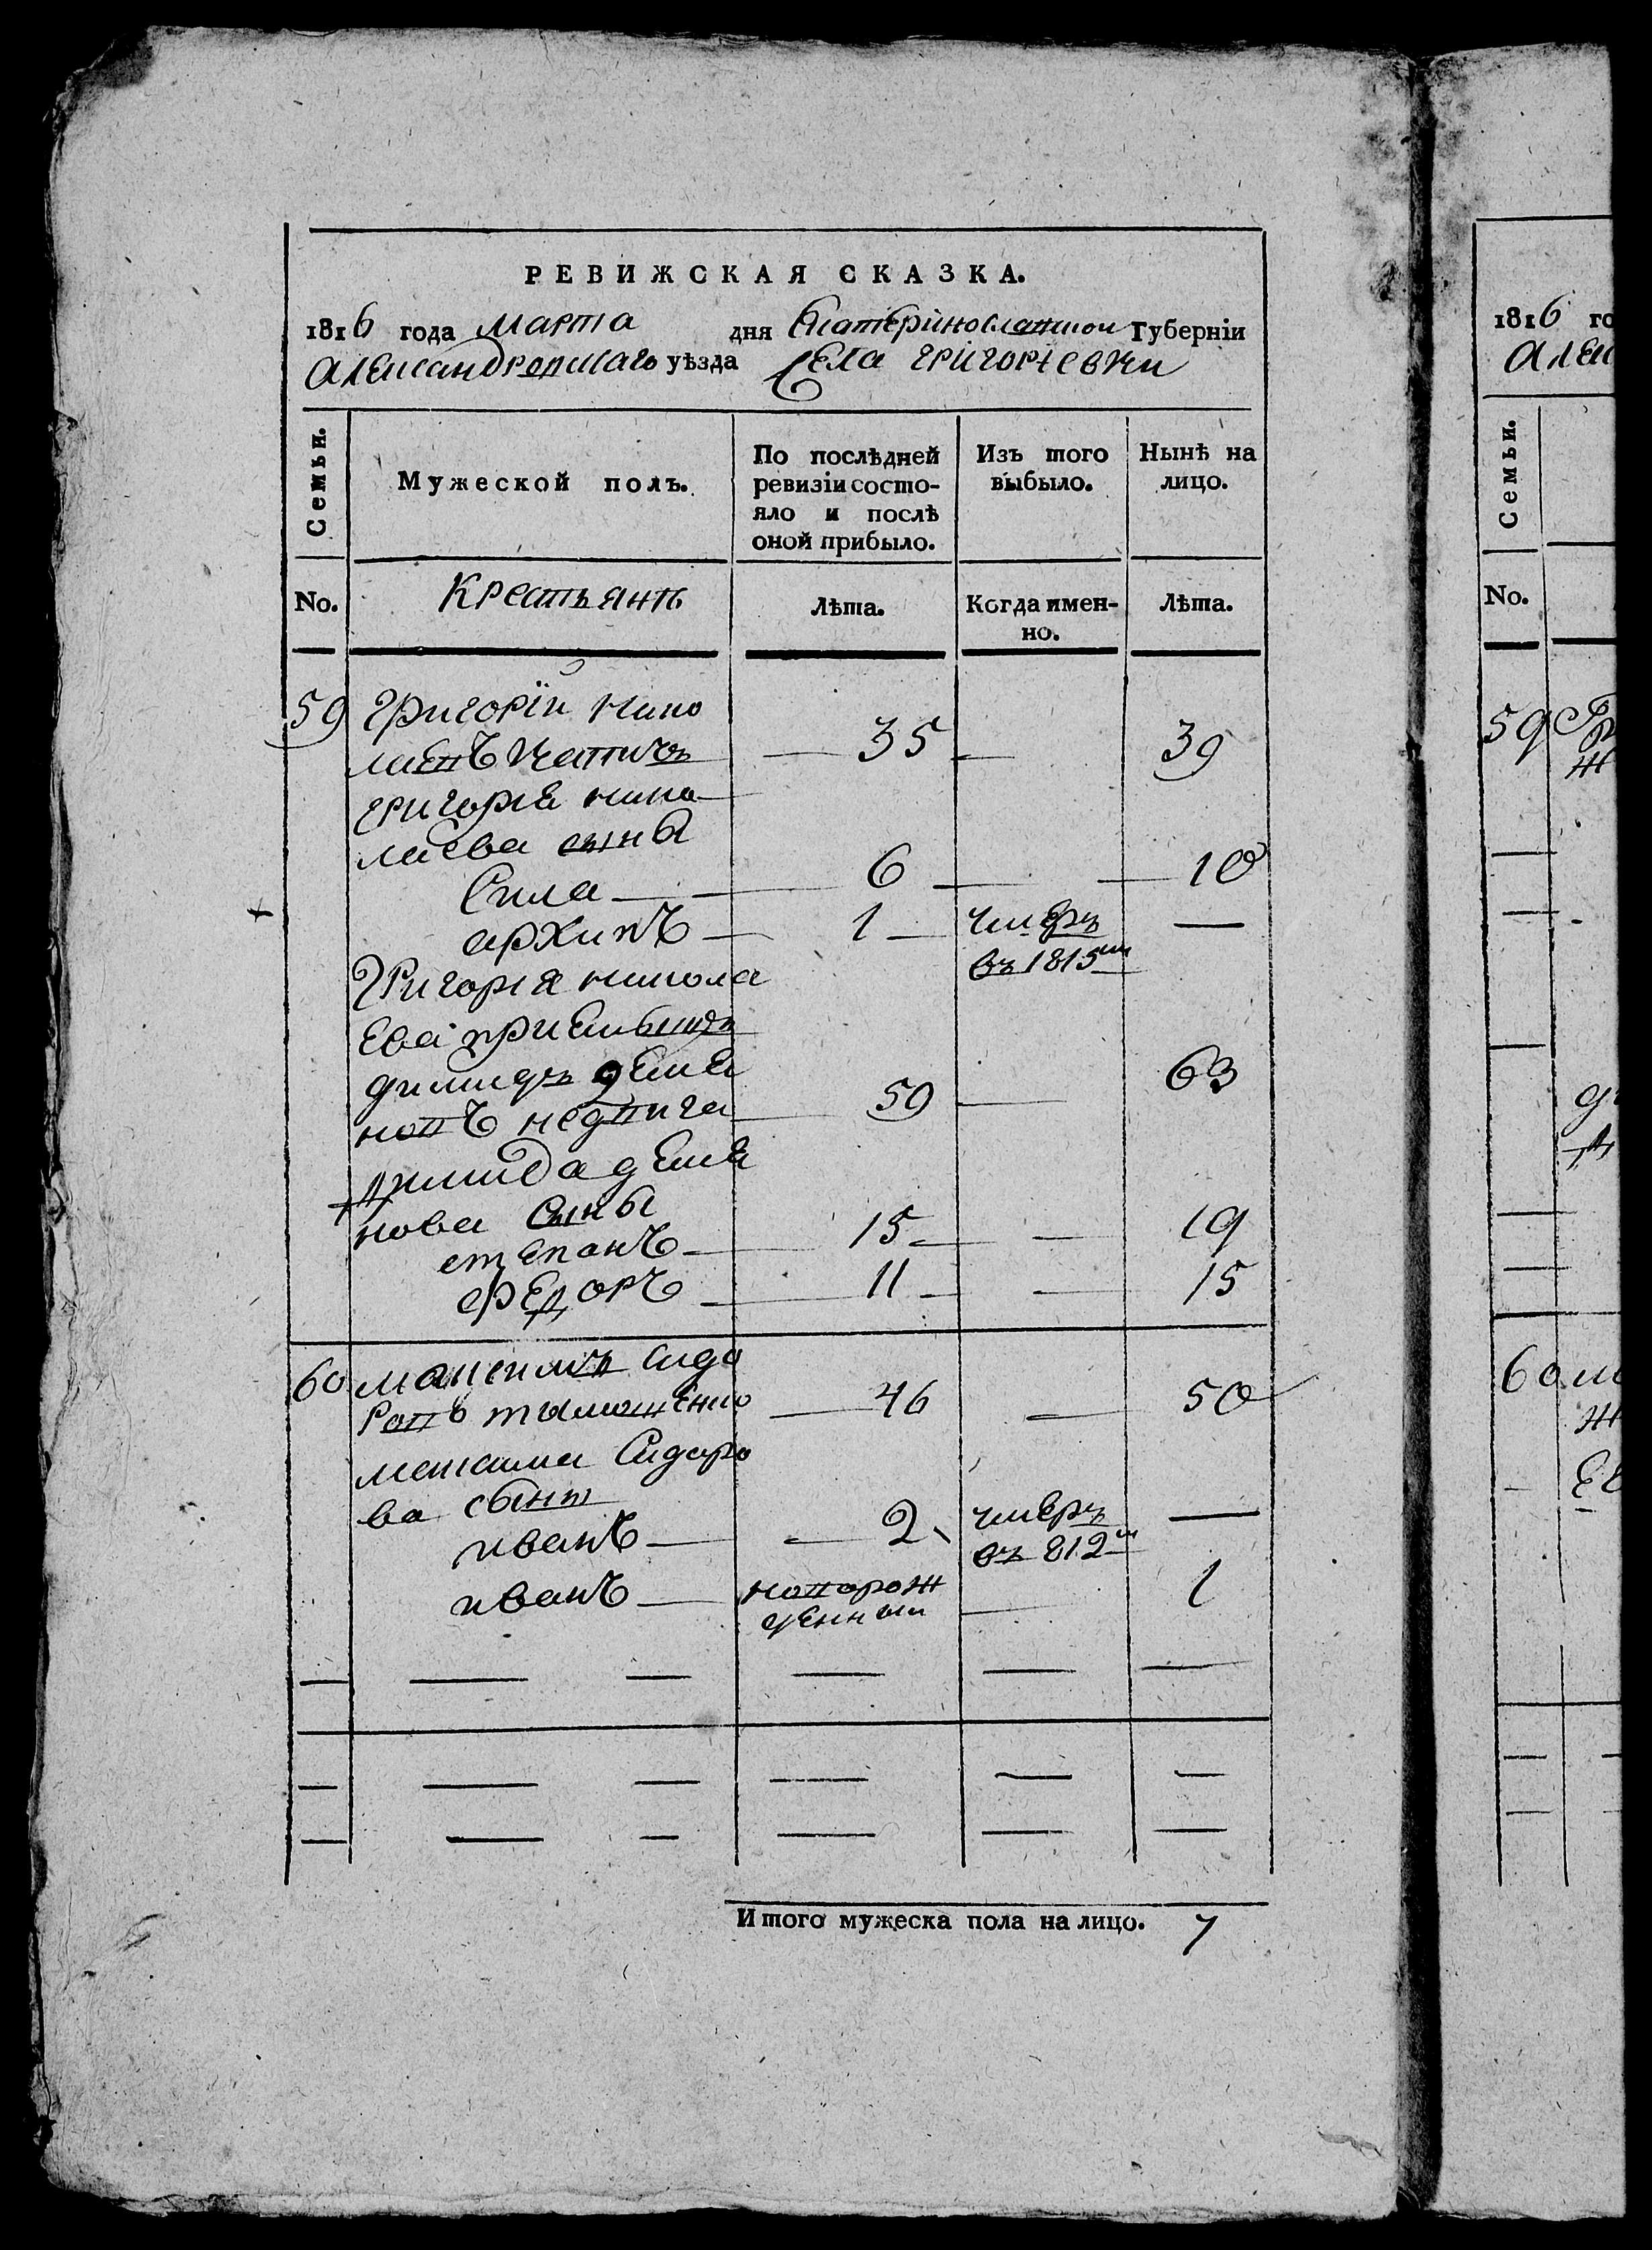 РЕВИЖСКАЯ СКАЗКА.
1816 года марта дня Екатеринославской Губерніи
Александровскаго уѣзда Села григорьевки
Семьи.
Мужеской полъ.
По послѣдней ревизіи состо-
яло и послѣ оной прибыло.
Изъ того выбыло.
Нынѣ на лицо.
No.
Крестьянъ
Лѣта.
Когда имен-
но.
Лѣта.
59 григорій нико
лаевъ 35 39
григорія нико
лаева сыны
Сила 6 10
архипъ 1 умеръ
въ 1815м
григорія никола
ева приемышъ
димидъ семе
новъ 59 63
димида семе
нова сыны
степанъ 15 19
федоръ 11 15
60 максимъ сидо
ровъ тымошенко 46 50
максима сидоро
ва сынъ
иванъ 2 умеръ
въ 812м
иванъ новорож
денный 1
Итого мужеска пола на лицо. 7
1816 го
Алек
Семьи.
No.
59
60